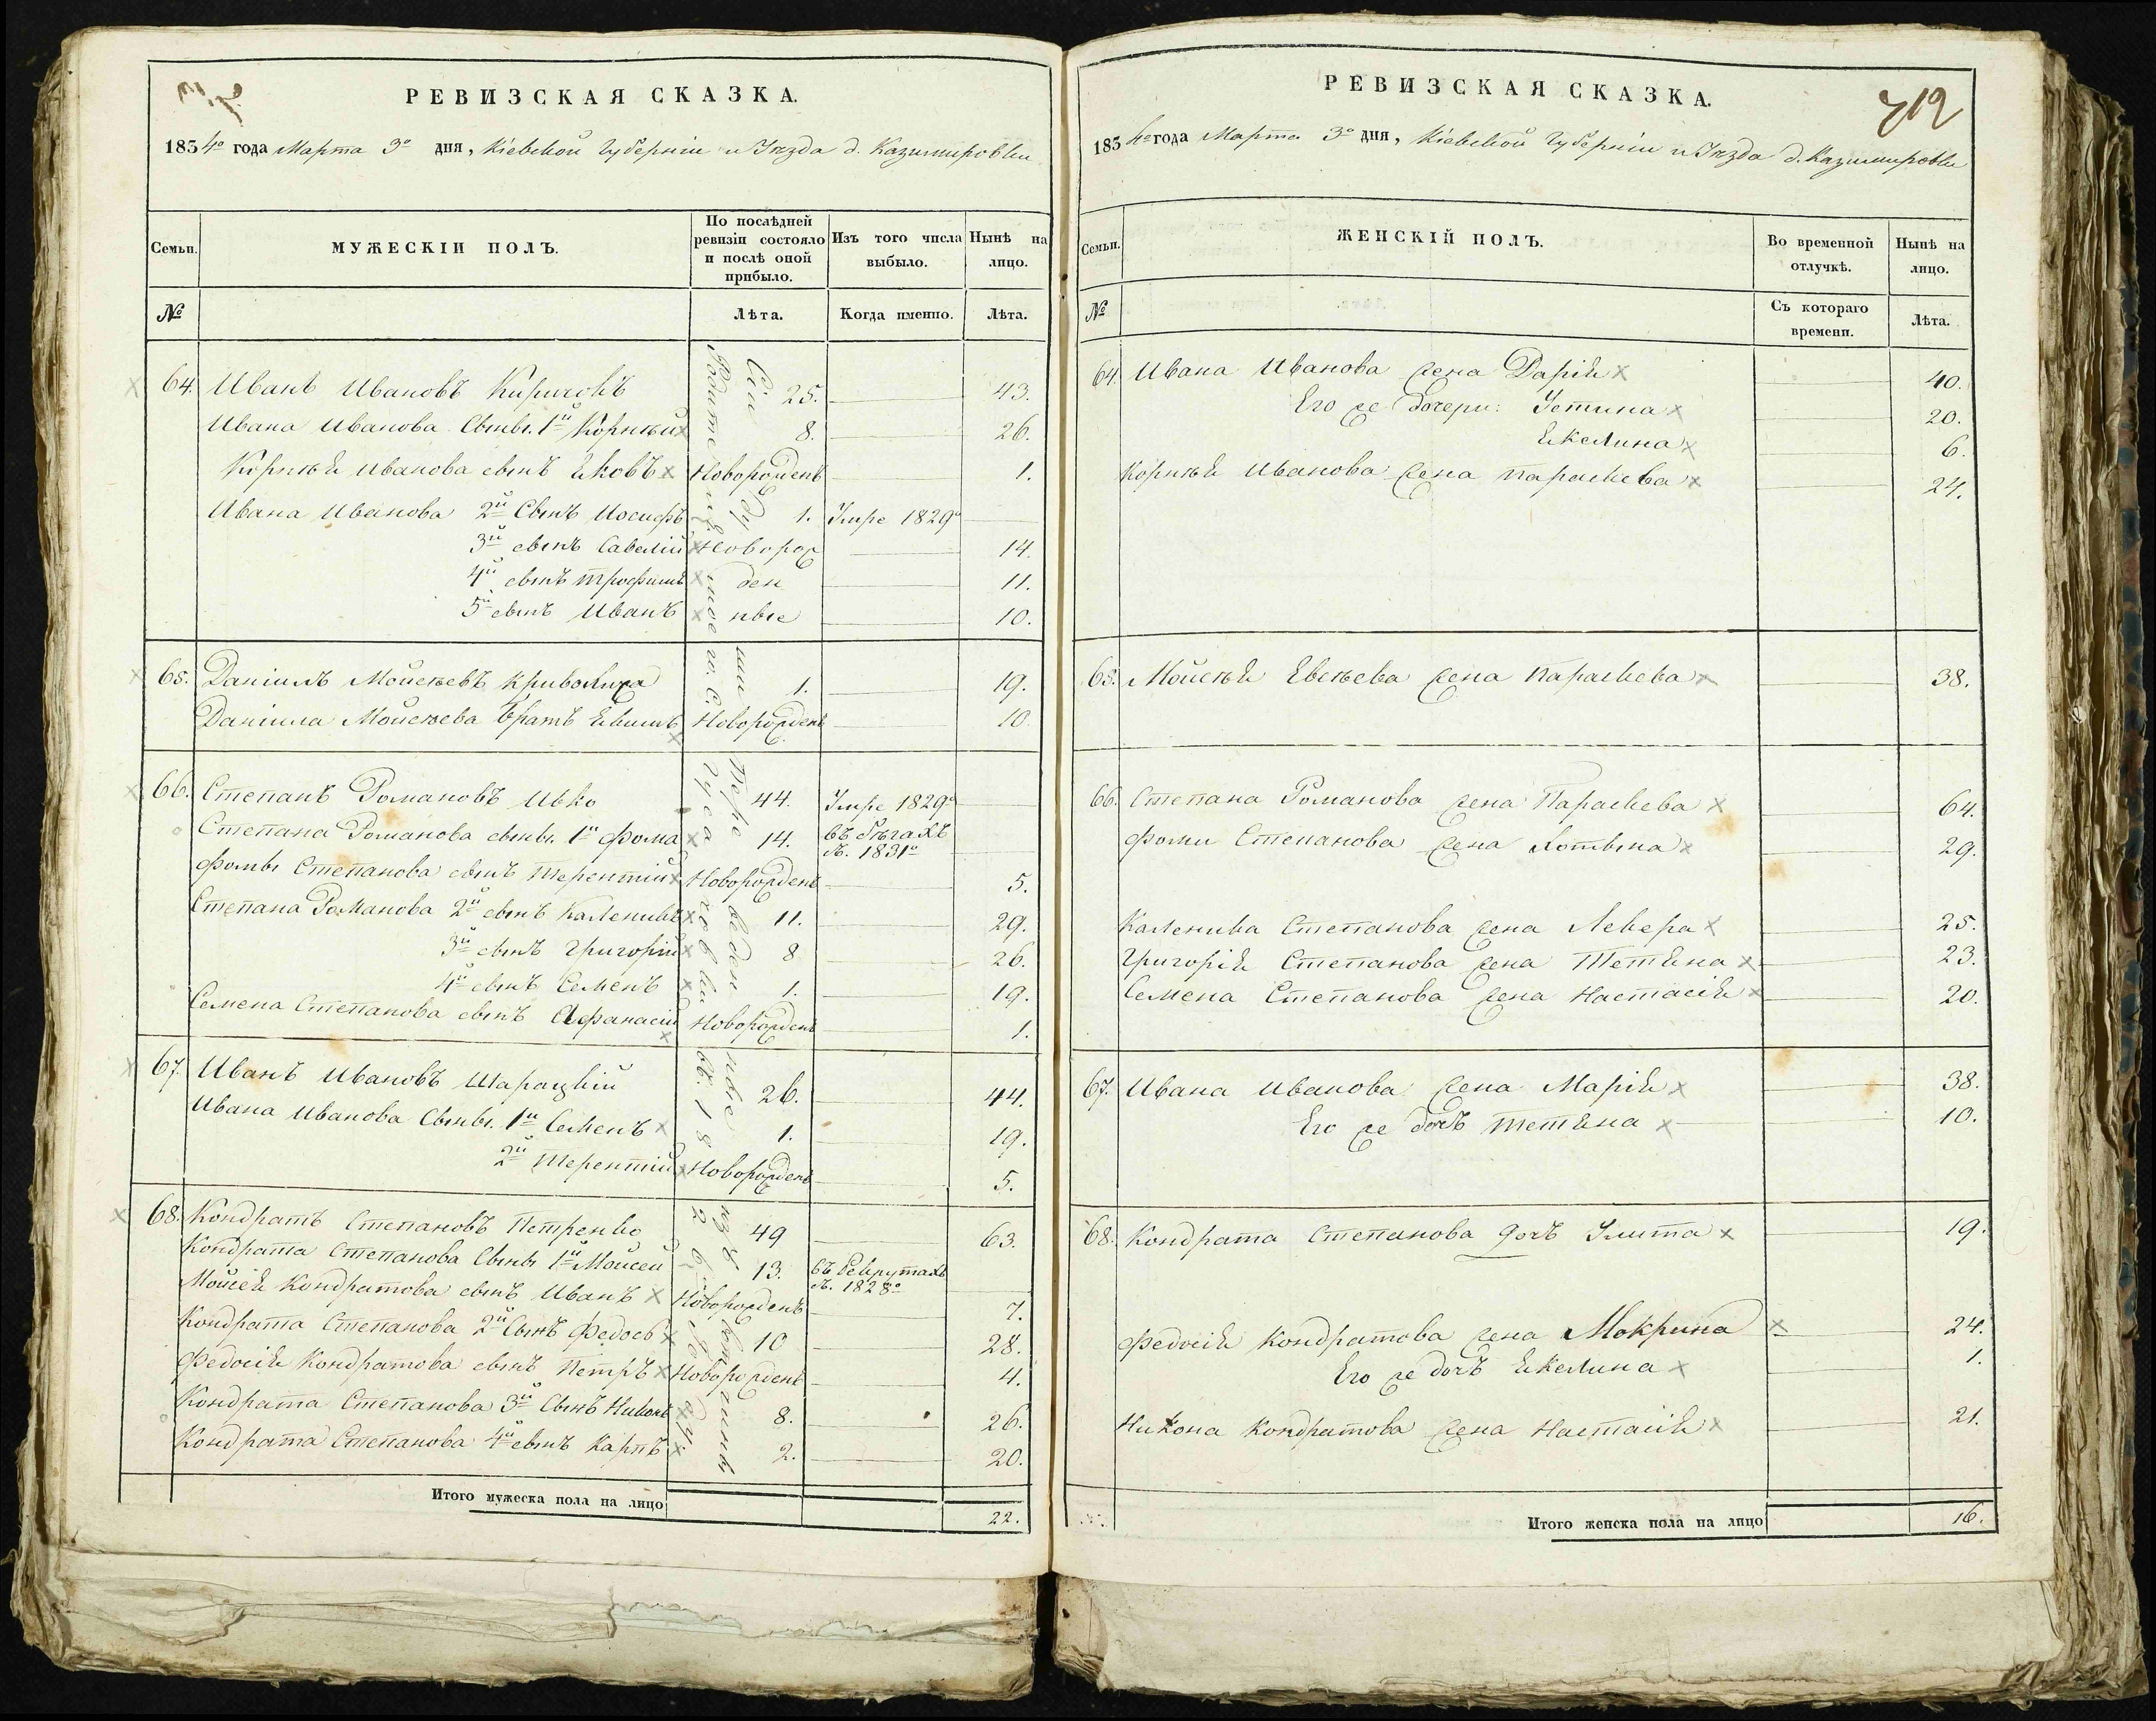 РЕВИЗСКАЯ СКАЗКА.
1834го года Марта 3го дня, Кіевской Губерніи и Уѣзда д. Казимировки
Семьи.
МУЖЕСКІЙ ПОЛЪ.
По послѣдней ревизіи состояло и послѣ оной прибыло.
Изъ того числа выбыло.
Нынѣ на лицо.
№
Лѣта.
Когда именно.
Лѣта.
64. Иванъ Ивановъ 25. 43.
Ивана Иванова Сыны. 1й Корнѣй 8. 26.
Корнѣя Иванова сынъ Яковъ Новорожденъ 1.
Ивана Иванова 2й Сынъ Иосифъ 1. Умре 1829го
3й сынъ Савелій Новорож 14.
4й сынъ Трофимъ ден 11.
5й сынъ Иванъ ные 10.
65. Даніилъ Мойсѣевъ Кривохижа 1. 19.
Даніила Мойсѣева братъ Новорожденъ 10.
66. Степанъ Романовъ Ивко 44. Умре 1829го
Степана Романова сыны. 1й Фома 14. въ бѣгахъ
съ. 1831го
Фомы Степанова сынъ Терентій Новорожденъ 5.
Степана Романова 2й сынъ Каленикъ 11. 29.
3й сынъ Григорій 8 26.
4й сынъ Семенъ 1. 19.
Семена Степанова сынъ Афанасій Новорожденъ 1.
67. Иванъ Ивановъ 26. 44.
Ивана Иванова Сыны. 1й Семенъ 1. 19.
2й Терентій Новорожденъ 5.
68. Кондратъ Степановъ Петренко 49 63.
Кондрата Степанова Сыны 1й Мойсей 13. въ рекрутахъ
съ. 1828го
Мойсея Кондратова сынъ Иванъ Новорожденъ 7.
Кондрата Степанова 2й Сынъ Федось 10 28.
Федосія Кондратова сынъ Петръ Новорожденъ 4.
Кондрата Степанова 3й Сынъ Никонъ 8. 26.
Кондрата Степанова 4й сынъ Карпъ 2. 20.
Сіи люди переведенные изъ вотчины
Родите
Итого мужеска пола на лицо 22.
712
РЕВИЗСКАЯ СКАЗКА.
1834го года Марта 3го дня, Кіевской Губерніи и Уѣзда д. Казимировки
Семьи.
ЖЕНСКІЙ ПОЛЪ.
Во временной отлучкѣ.
Нынѣ на лицо.
№
Съ котораго времени.
Лѣта.
64. Ивана Иванова жена Дарія 40.
Его же дочери: Устина 20.
Якелина 6.
Корнѣя Иванова жена Параскева 24.
65. Мойсѣя Евсѣева жена Параскева 38.
66. Степана Романова жена Параскева 64.
Фомы Степанова жена Хотына 29.
Каленика Степанова жена Левера 25.
Григорія Степанова жена Тетяна 23.
Семена Степанова жена Настасія 20.
67. Ивана Иванова жена Марія 38.
Его же дочь Тетяна 10.
68. Кондрата Степанова дочь Улита 19.
Федосія Кондратова жена Мокрина 24.
Его же дочь Якелина 1.
Никона Кондратова жена Настасія 21.
Итого женска пола на лицо 16.